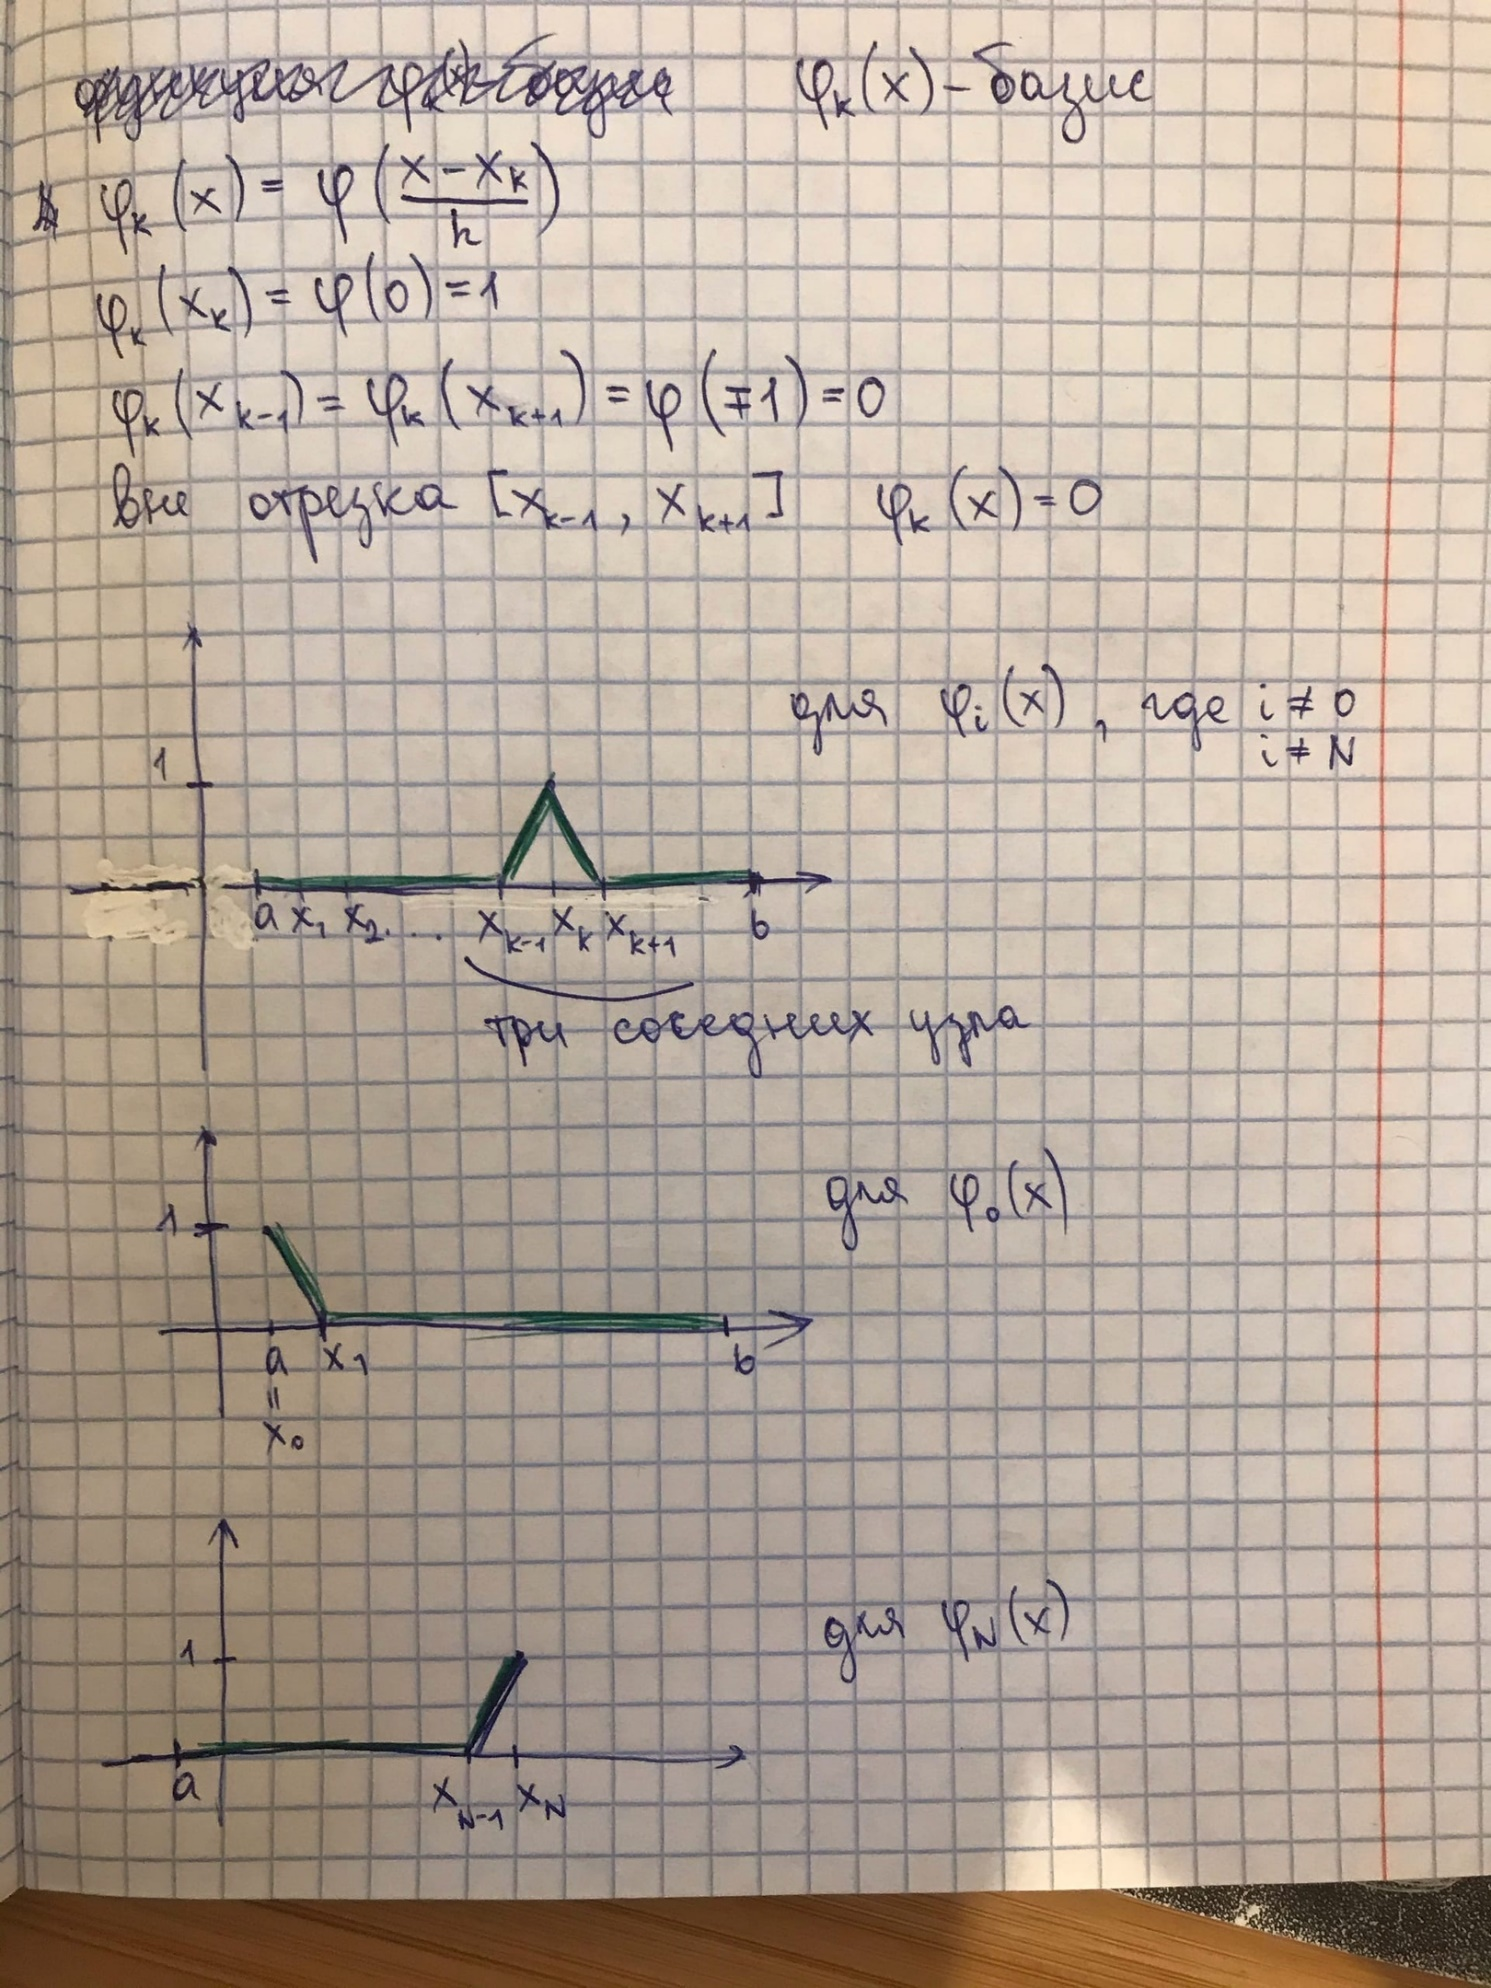 φₖ(x) – базис
φₖ(x) = φ((x – xₖ)/h)
φₖ(xₖ) = φ(0) = 1
φₖ(xₖ₋₁) = φₖ(xₖ₊₁) = φ(∓1) = 0
вне отрезка [xₖ₋₁, xₖ₊₁] φₖ(x) = 0
для φᵢ(x), где i ≠ 0
i ≠ N
1
a x₁ x₂ . . . xₖ₋₁ xₖ xₖ₊₁ b
три соседних узла
для φ₀(x)
1
a x₁ b
=
x₀
для φ_N(x)
1
a x_{N-1} x_N